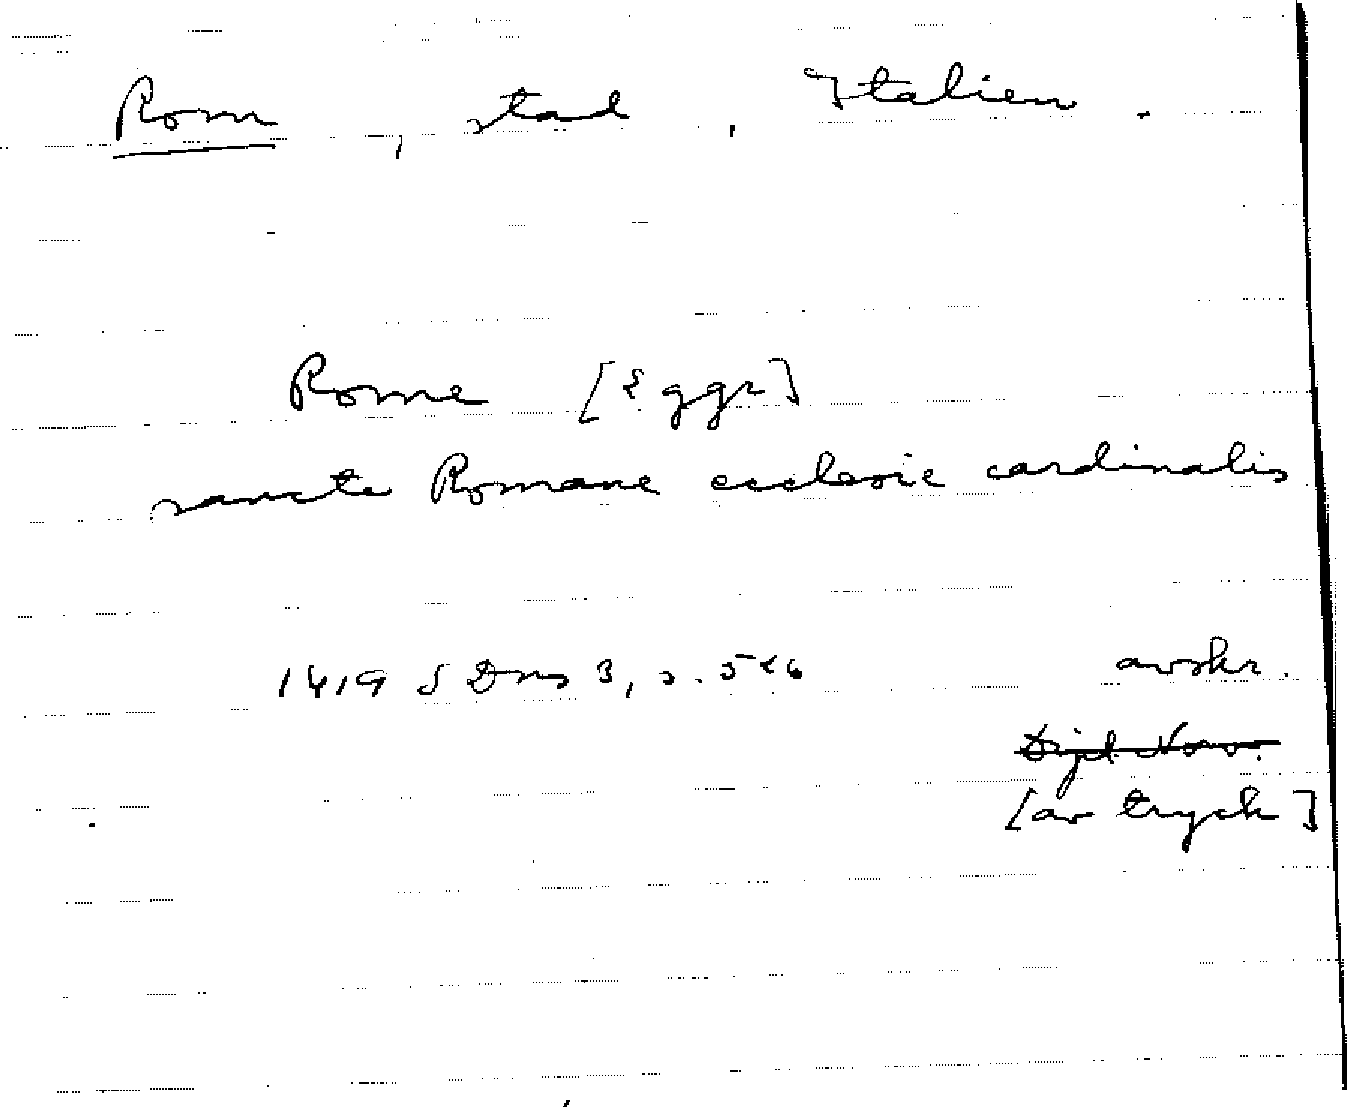 Rom, stad, Italien.
Rome [2 ggr]
sancte Romane ecclesie cardinalis
1419 SDns 3, s. 526 avskr.
[av tryck]